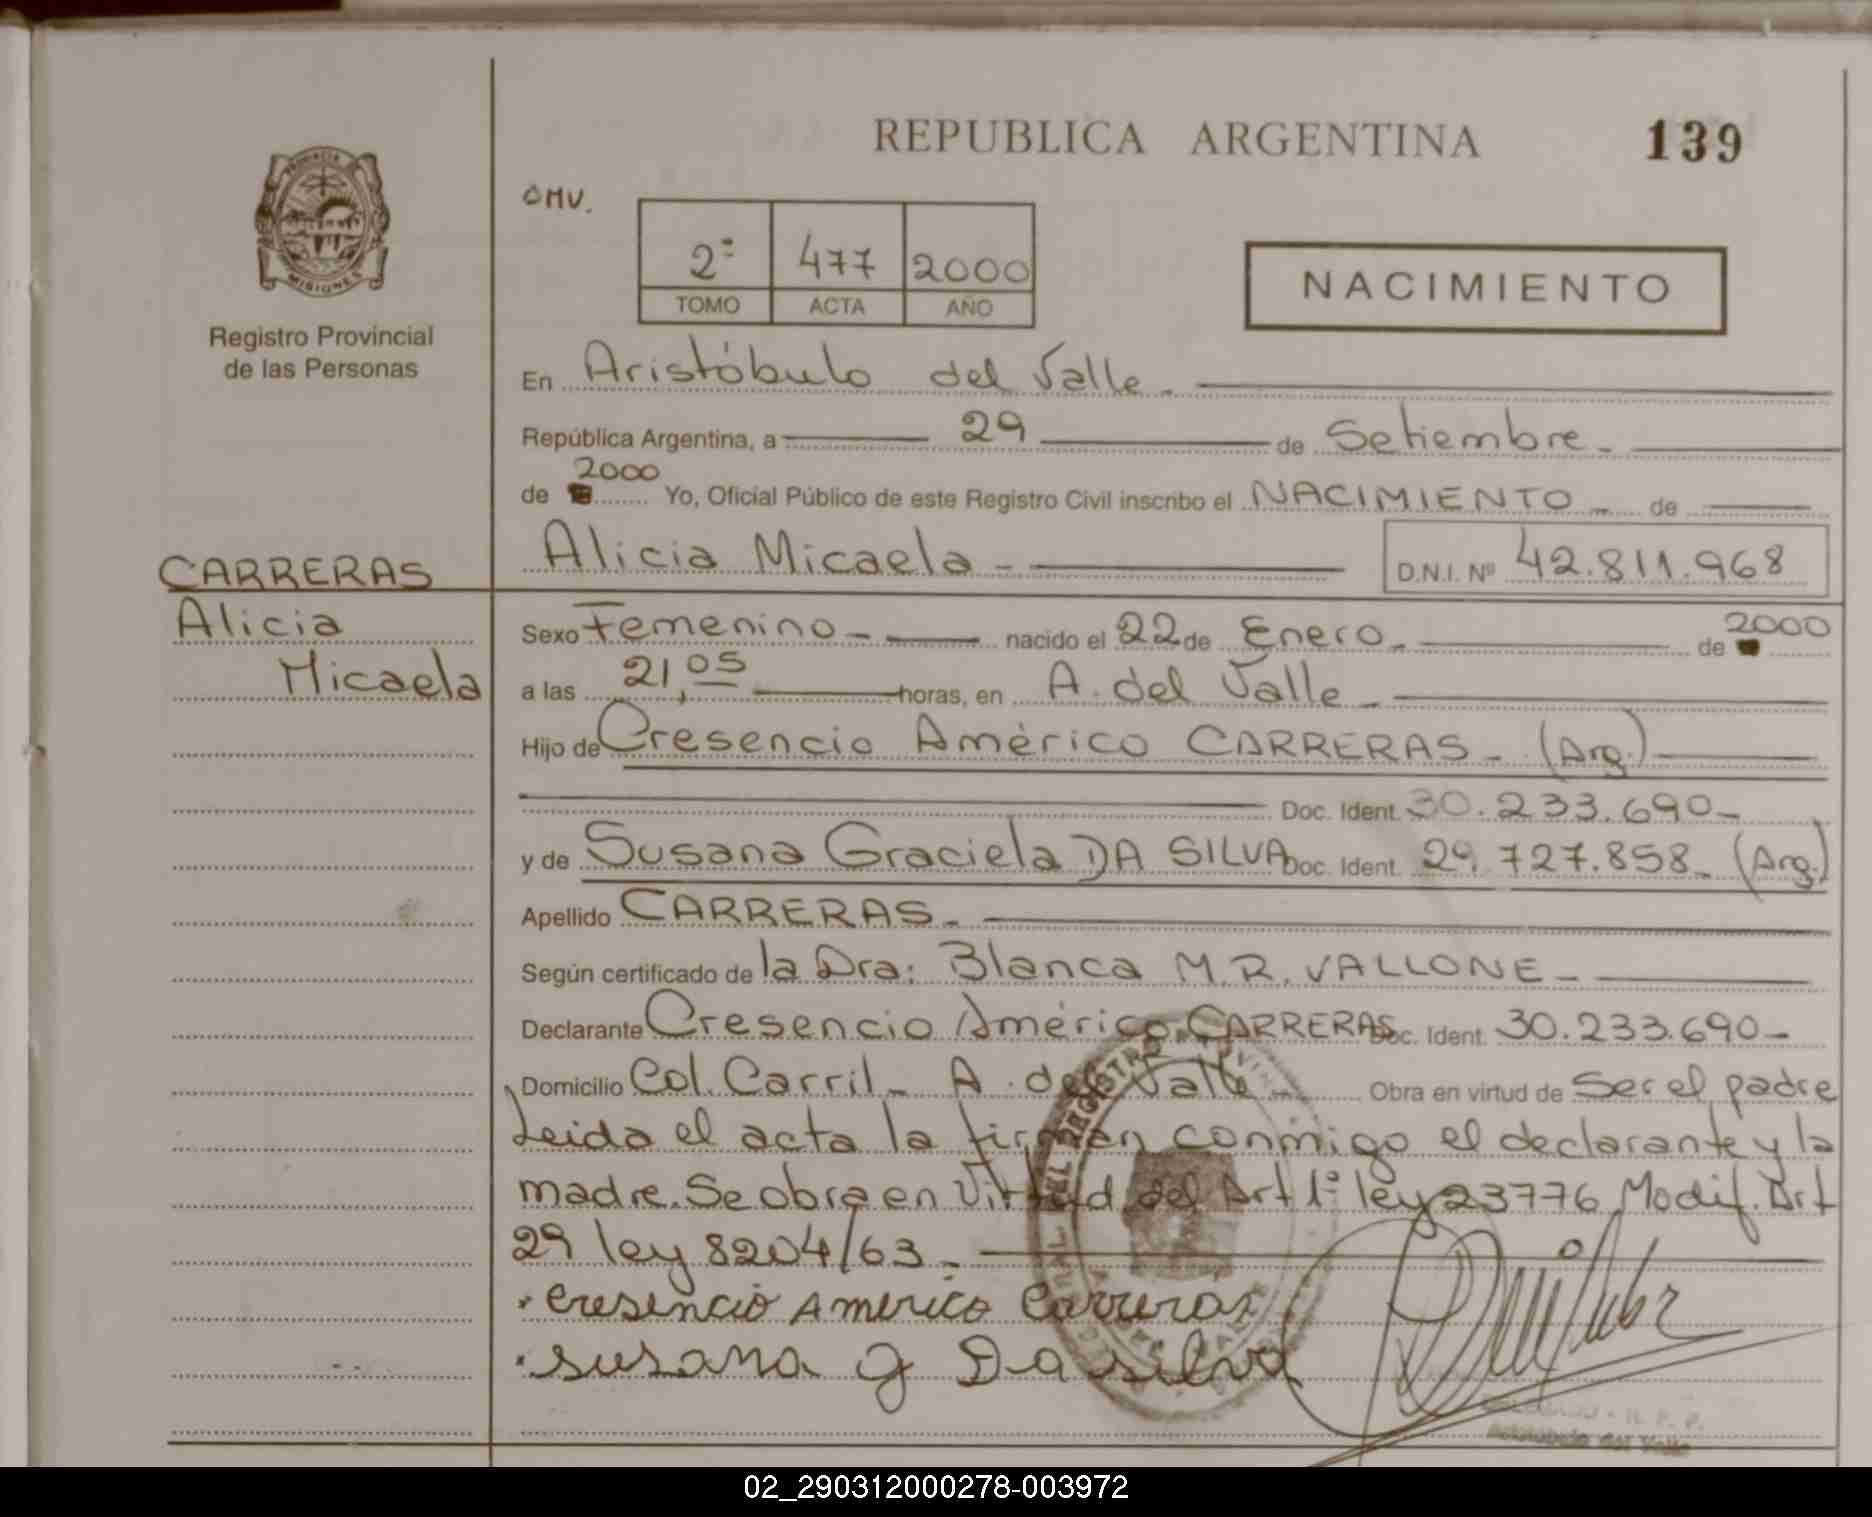 REPUBLICA ARGENTINA
139
OMV.
2º 477 2000
TOMO ACTA AÑO
NACIMIENTO
PROVINCIA
MISIONES
Registro Provincial
de las Personas
En Aristóbulo del Valle
República Argentina, a 29 de Setiembre
2000
de Yo, Oficial Público de este Registro Civil inscribo el NACIMIENTO de
CARRERAS
Alicia
Micaela
Alicia Micaela D.N.I. Nº 42.811.968
Sexo Femenino nacido el 22 de Enero de 2000
a las 21,05 horas, en A. del Valle
Hijo de Cresencio Américo CARRERAS (Arg.)
Doc. Ident. 30.233.690
y de Susana Graciela DA SILVA Doc. Ident. 29.727.858 (Arg.)
Apellido CARRERAS
Según certificado de la Dra: Blanca M.R. VALLONE
Declarante Cresencio Américo CARRERAS Doc. Ident. 30.233.690
Domicilio Col. Carril - A. del Valle Obra en virtud de Ser el padre
Leida el acta la firman conmigo el declarante y la
madre. Se obra en Virtud del Art 1º ley 23776 Modif. Art
29 ley 8204/63
Cresencio Americo Carreras
Susana G Da silva
R. P. P.
Aristóbulo del Valle
02_290312000278-003972